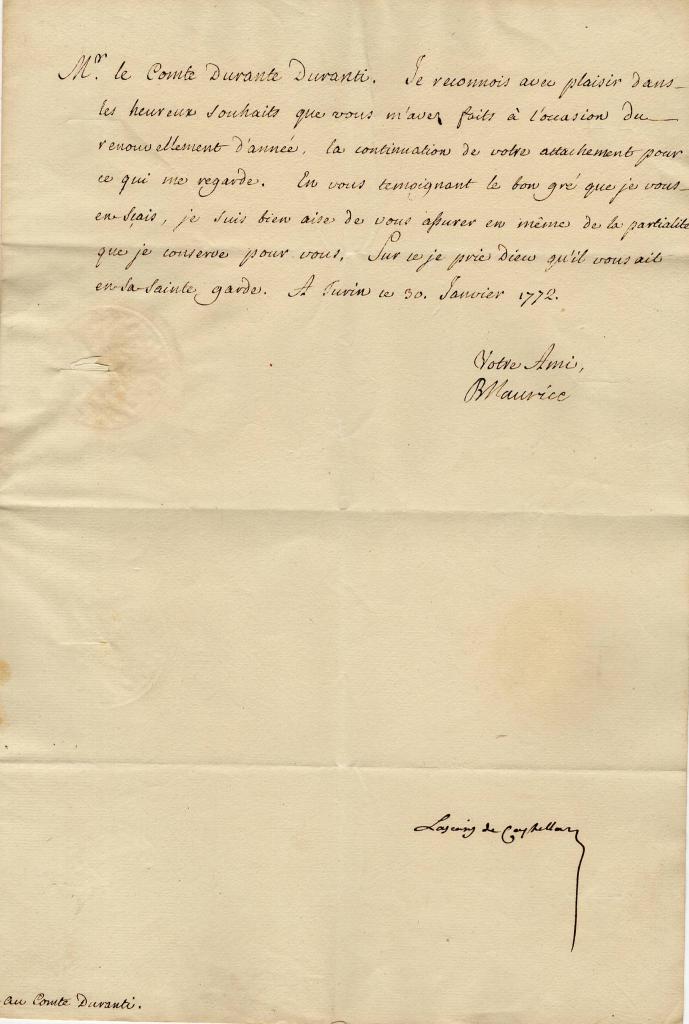 Mr. le Comte Durante Duranti. Je reconnois avec plaisir dans
les heureux souhaits que vous m'avez faits à l'occasion du
renouvellement d'année, la continuation de votre attachement pour
ce qui me regarde. En vous temoignant le bon gré que je vous
en sçais, je suis bien aise de vous assurer en même de la partialité
que je conserve pour vous. Sur ce je prie Dieu qu'il vous ait
en sa sainte garde. A Turin ce 30. Janvier 1772.
Votre Ami,
Maurice
Lascaris de Castellar
au Comte Duranti.